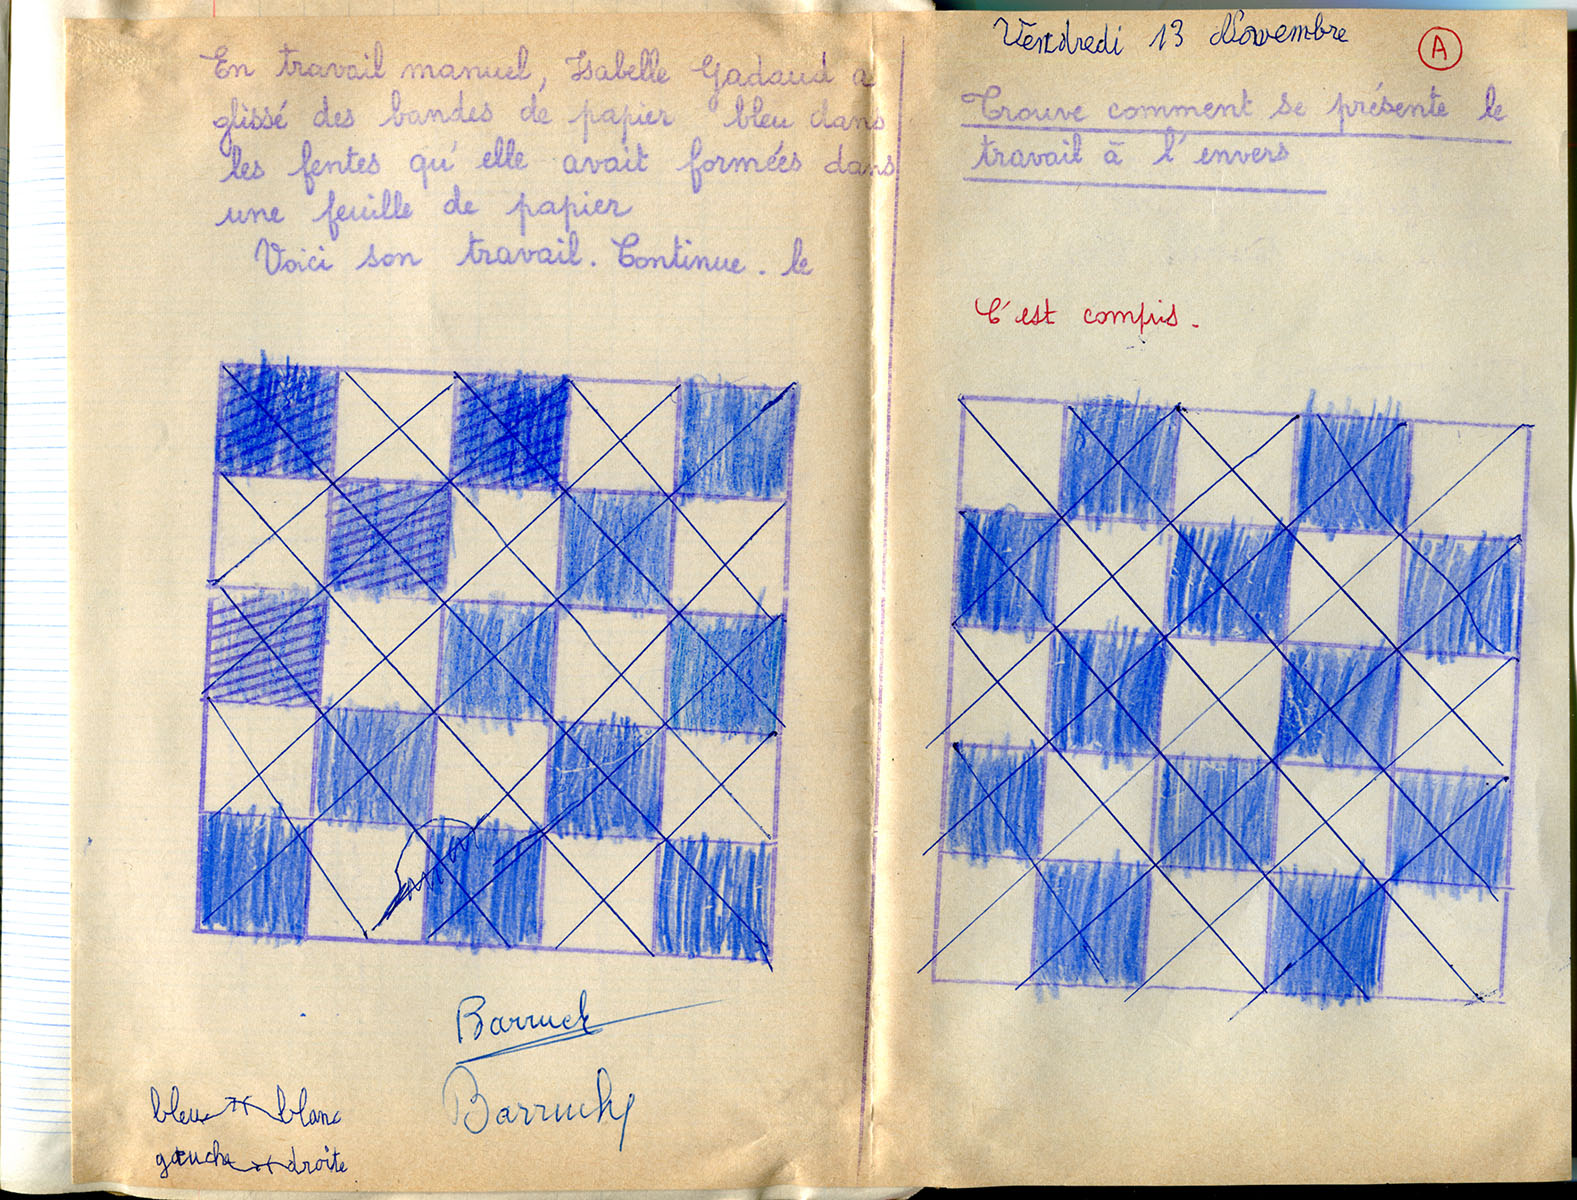 En travail manuel, Isabelle Gadaud a
glissé des bandes de papier bleu dans
les fentes qu'elle avait formées dans
une feuille de papier
Voici son travail. Continue-le
Barruch
Barruchy
bleu blanc
gauche droite
Vendredi 13 Novembre
A
Trouve comment se présente le
travail à l'envers
C'est compris.